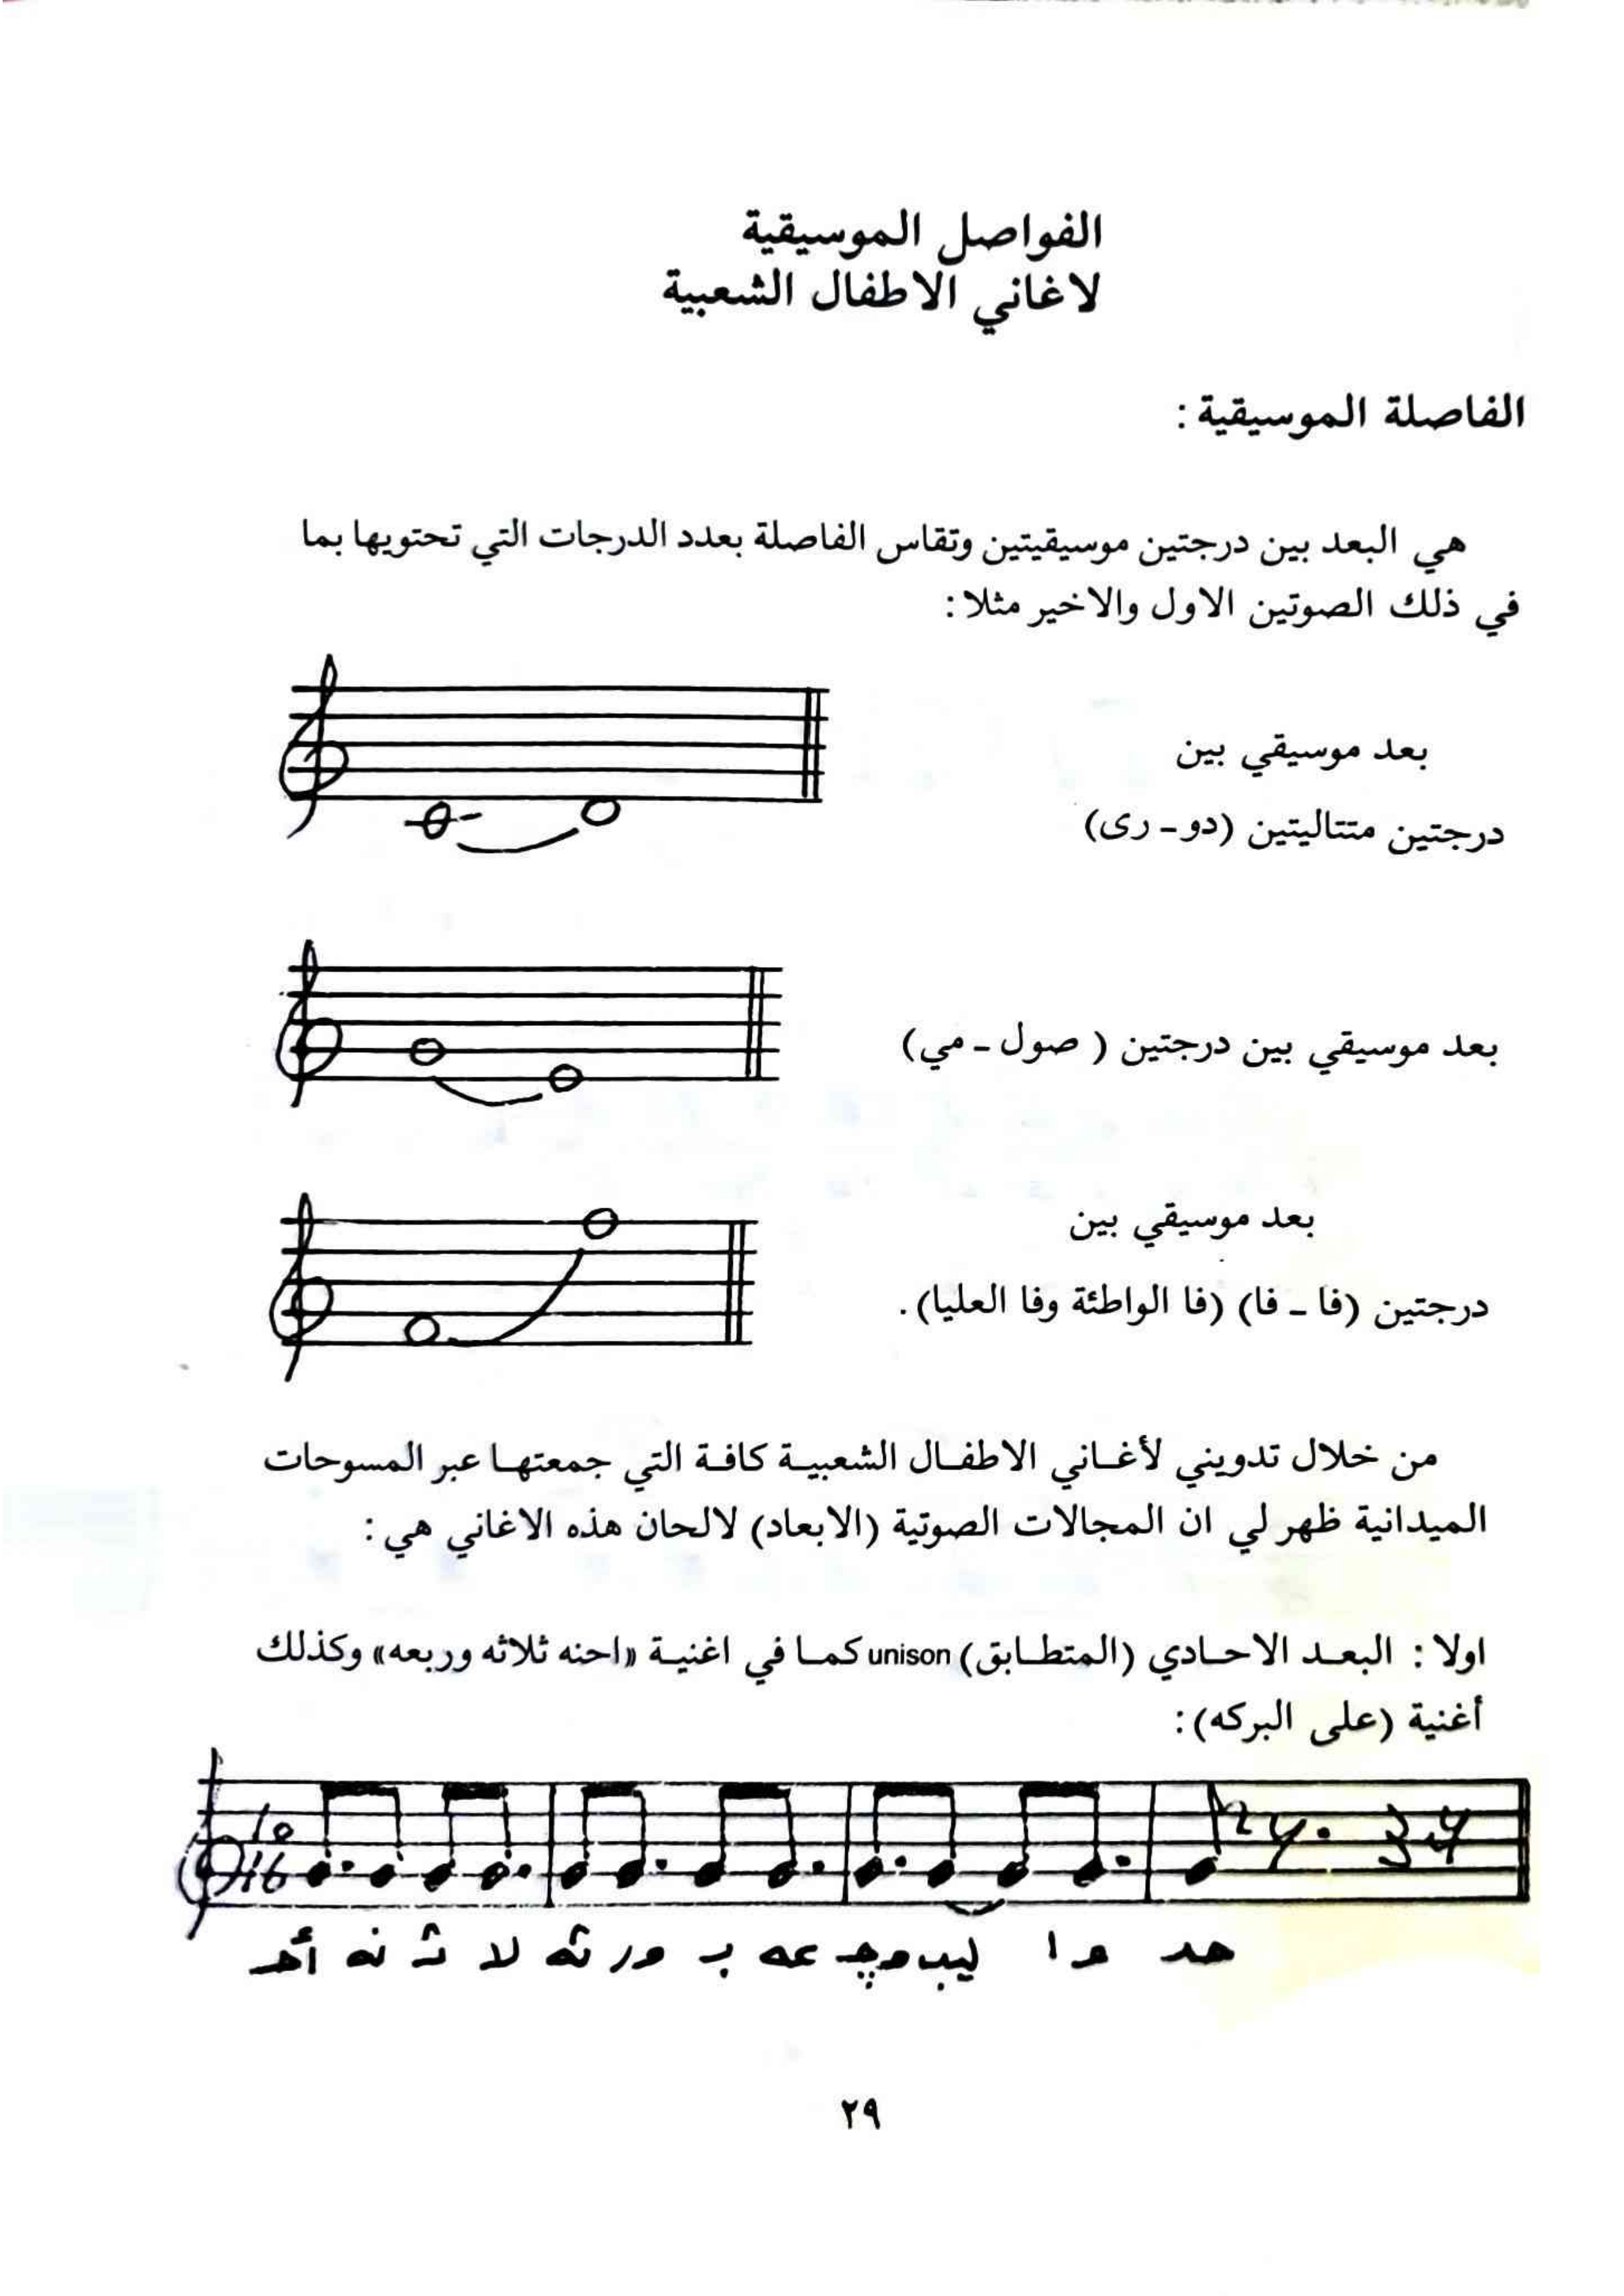 الفواصل الموسيقية
لاغاني الاطفال الشعبية
الفاصلة الموسيقية :
هي البعد بين درجتين موسيقيتين وتقاس الفاصلة بعدد الدرجات التي تحتويها بما
في ذلك الصوتين الاول والاخير مثلا :
بعد موسيقي بين
درجتين متتاليتين (دو ـ رى)
بعد موسيقي بين درجتين ( صول ـ مي)
بعد موسيقي بين
درجتين (فا ـ فا) (فا الواطئة وفا العليا) .
من خلال تدويني لأغاني الاطفال الشعبية كافة التي جمعتها عبر المسوحات
الميدانية ظهر لي ان المجالات الصوتية (الابعاد) لالحان هذه الاغاني هي :
اولا : البعد الاحادي (المتطابق) unison كما في اغنية «احنه ثلاثه وربعه» وكذلك
أغنية (على البركه) :
10
16
أحـ نه ثـ لا ثه ور بـ عه ليب وا حد
٢٩